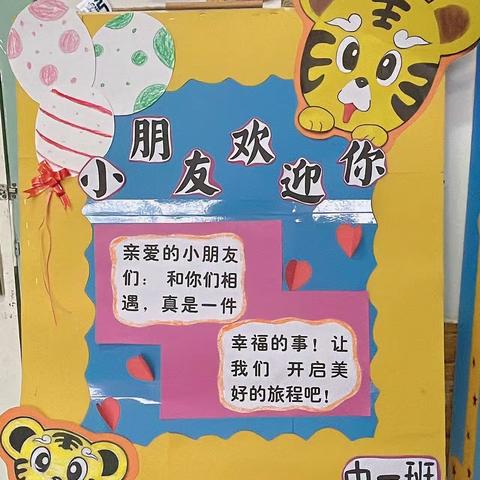 小朋友欢迎你
亲爱的小朋友
们： 和你们相
遇，真是一件
幸福的事！让
我们 开启美
好的旅程吧！
中一班